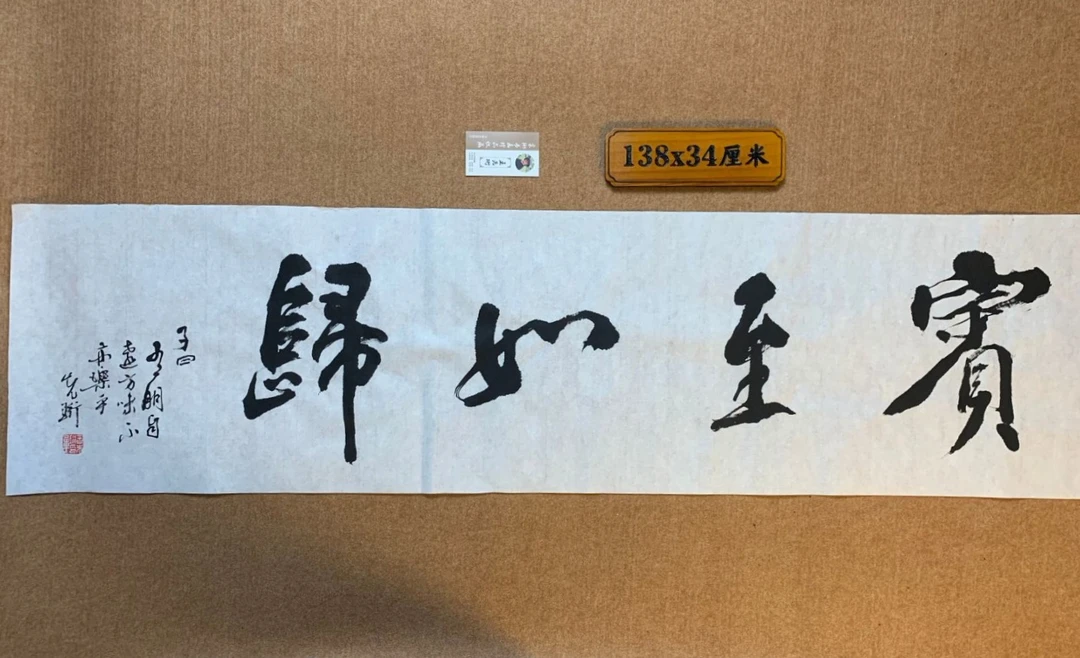 138x34厘米
賓至如歸
子曰
有朋自
遠方來不
亦樂乎